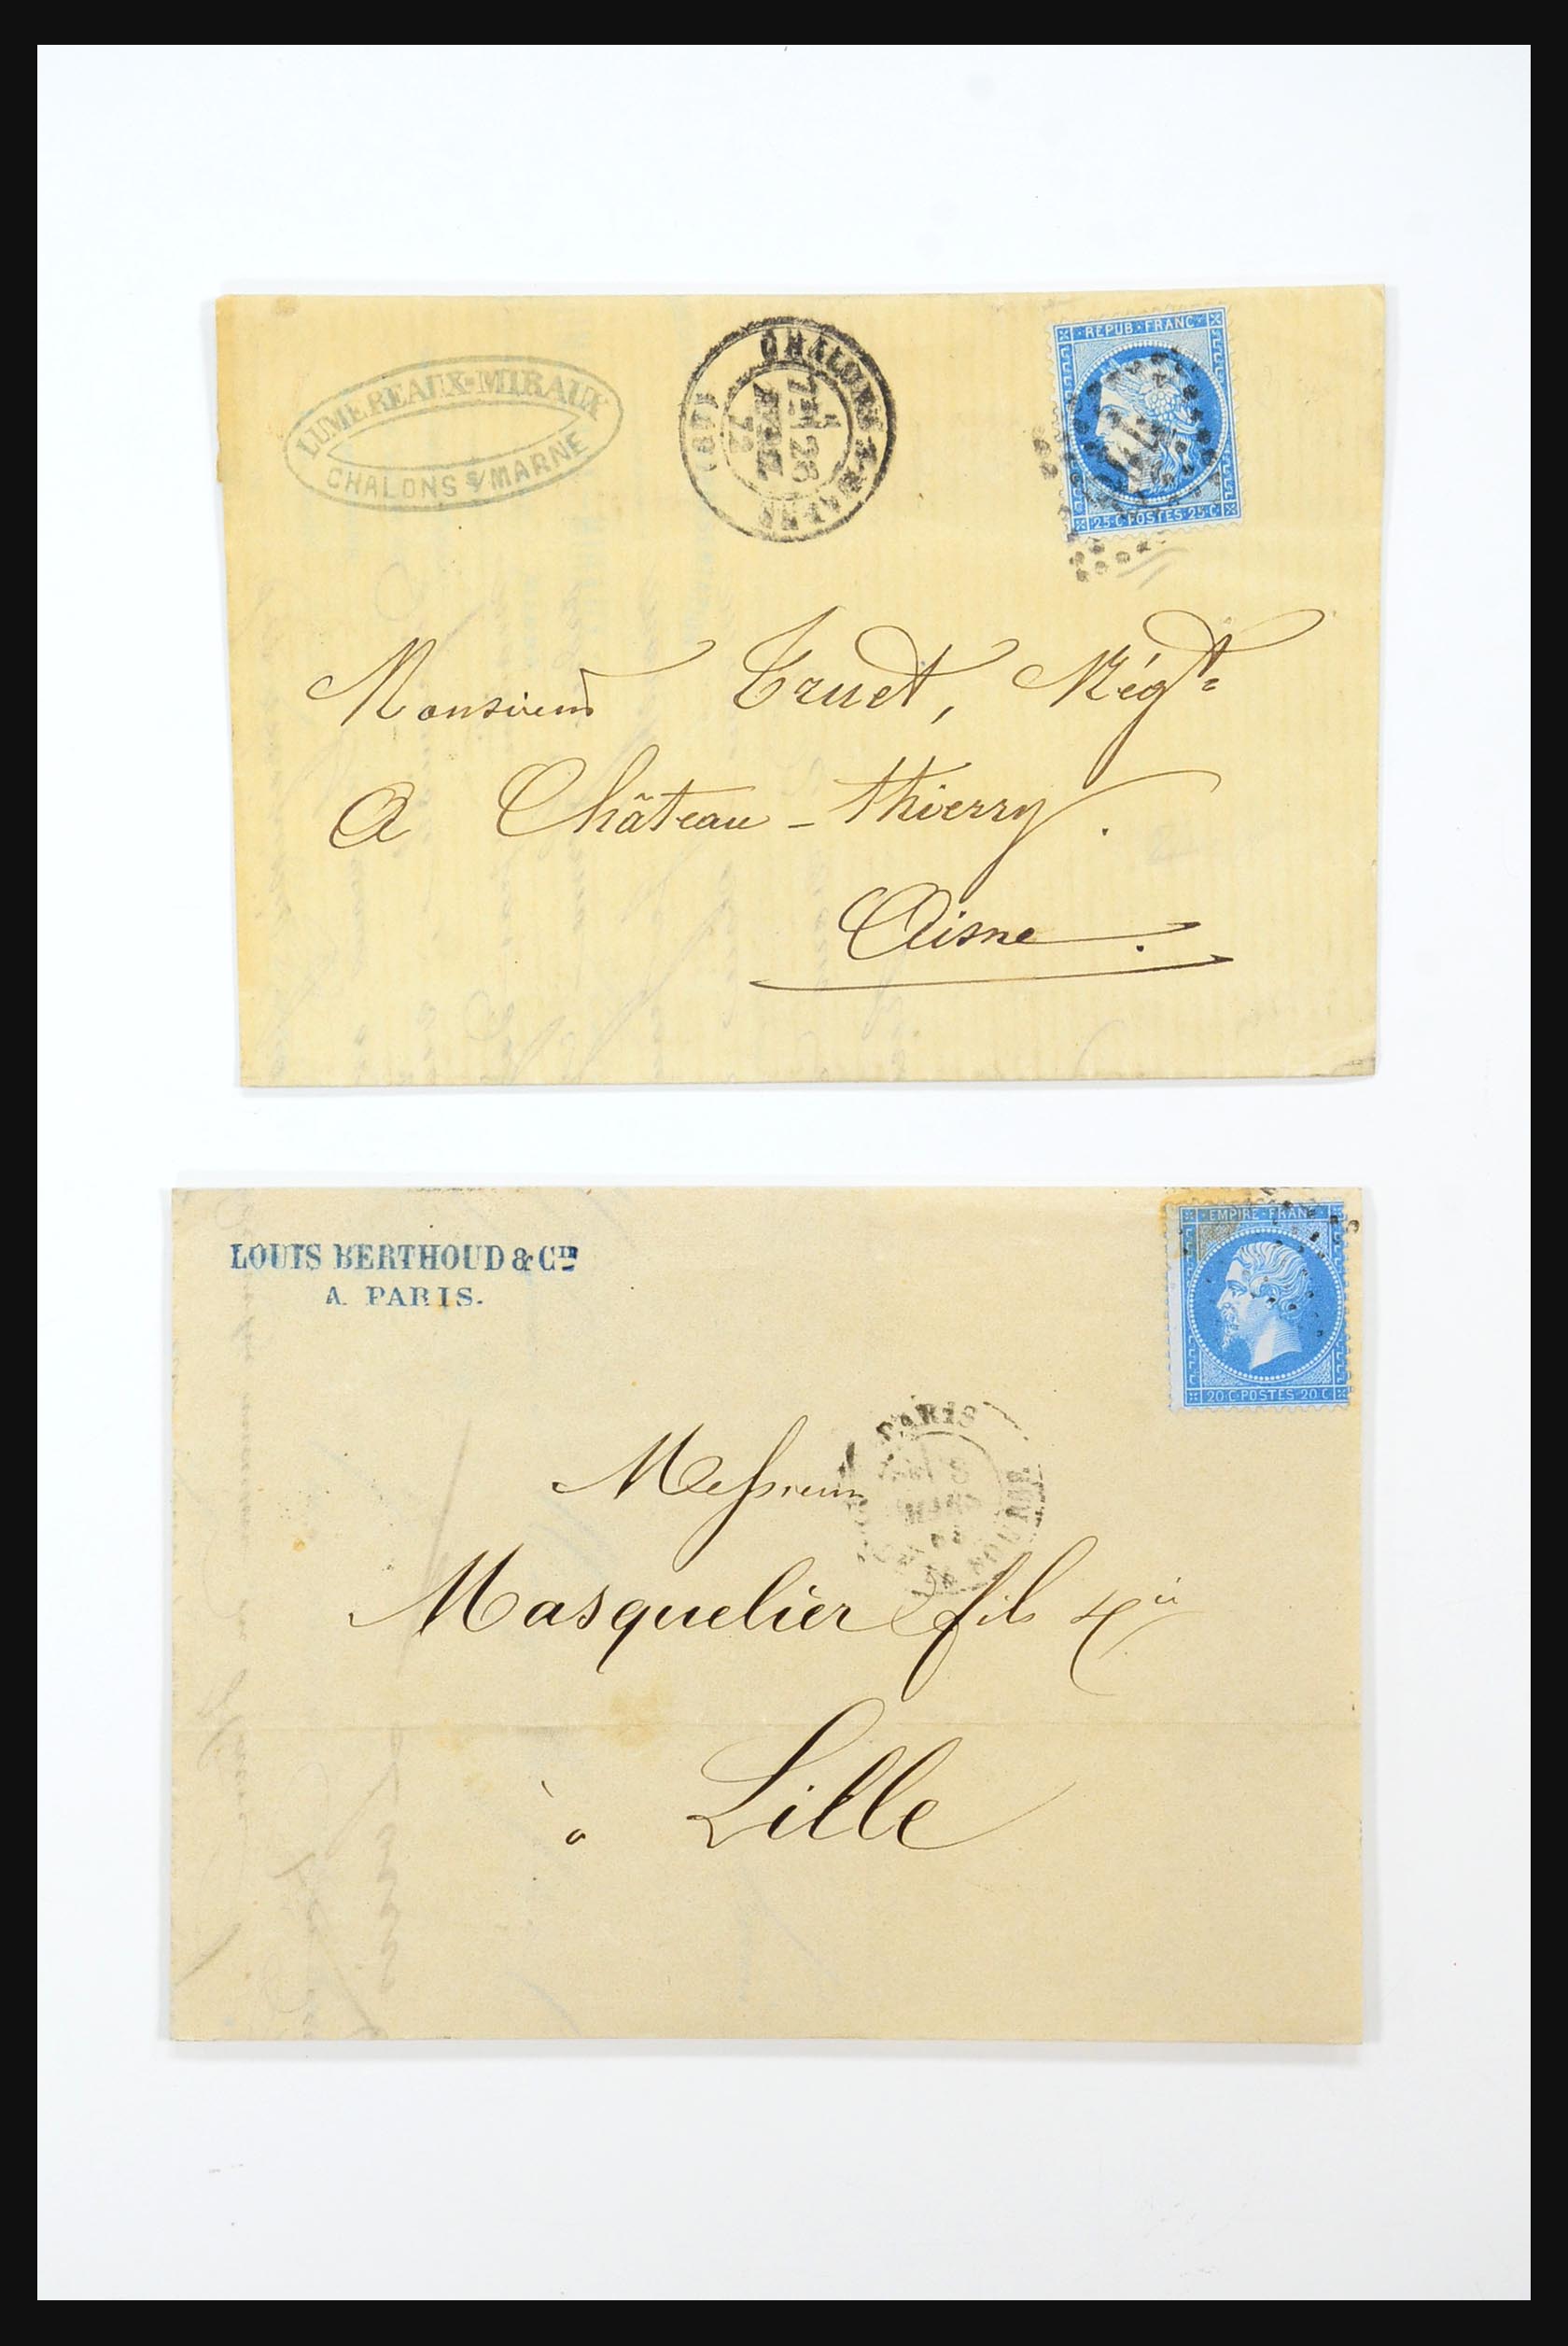 LUMEREAUX-MIRAUX
CHALONS S/MARNE
CHALONS-S-MARNE
7E 26
72
(49)
REPUB·FRANC
25·C·POSTES·25·C
Monsieur Truet, Négt
A Château-Thierry.
Aisne.
LOUIS BERTHOUD & CIE
A PARIS.
EMPIRE·FRANC
20·C·POSTES·20·C
PARIS
MARS
Messieurs
Masquelier fils & Cie
à Lille